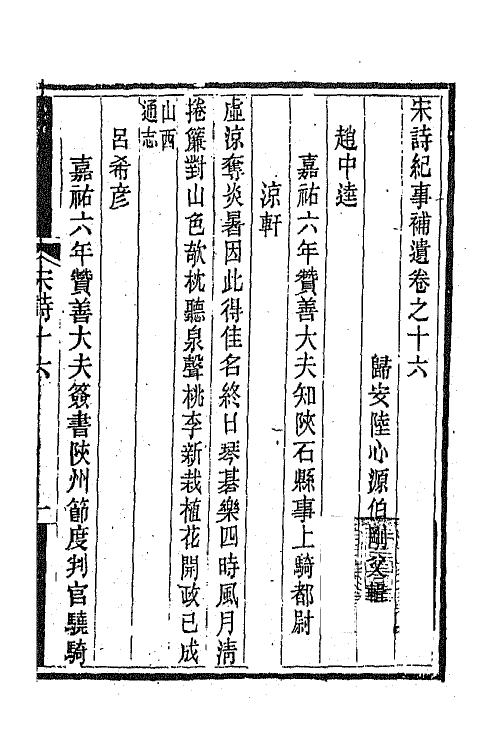 宋詩紀事補遺卷之十六
歸安陸心源伯剛父輯
趙中逵
嘉祐六年贊善大夫知陝石縣事上騎都尉
涼軒
虛涼奪炎暑因此得佳名終日琴碁樂四時風月淸
捲簾對山色欹枕聽泉聲桃李新栽植花開政已成
山西
通志
呂希彦
嘉祐六年贊善大夫簽書陝州節度判官驍騎
宋詩十六
一